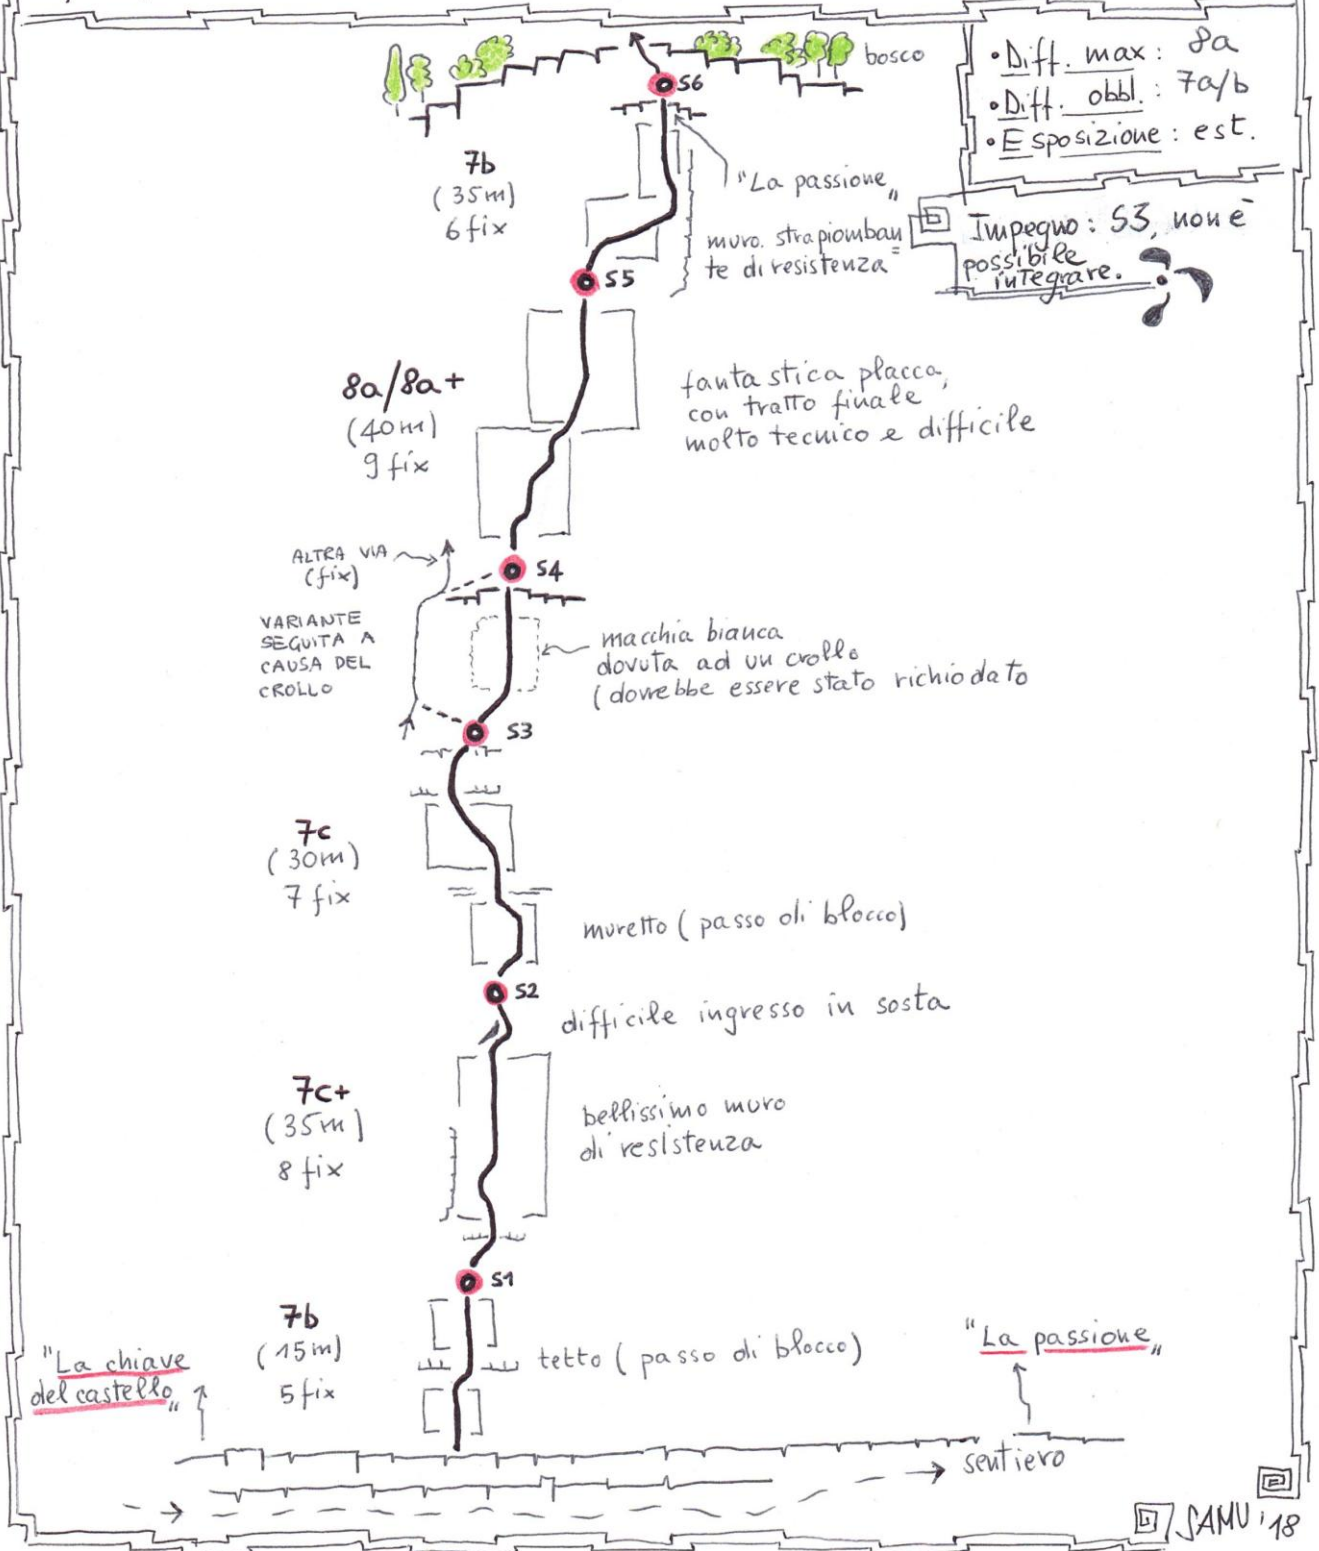 • Diff. max : 8a
• Diff. obbl. : 7a/b
• Esposizione : est.
Impegno : S3, non è
possibile
integrare.
bosco
S6
7b
(35m)
6 fix
"La passione"
muro strapiomban
te di resistenza
S5
8a/8a+
(40m)
9 fix
fantastica placca,
con tratto finale
molto tecnico e difficile
ALTRA VIA
(fix)
S4
VARIANTE
SEGUITA A
CAUSA DEL
CROLLO
macchia bianca
dovuta ad un crollo
(dovrebbe essere stato richiodato
S3
7c
(30m)
7 fix
muretto (passo di blocco)
S2
difficile ingresso in sosta
7c+
(35m)
8 fix
bellissimo muro
di resistenza
S1
7b
(15m)
5 fix
tetto (passo di blocco)
"La chiave
del castello"
"La passione"
sentiero
SAMU '18